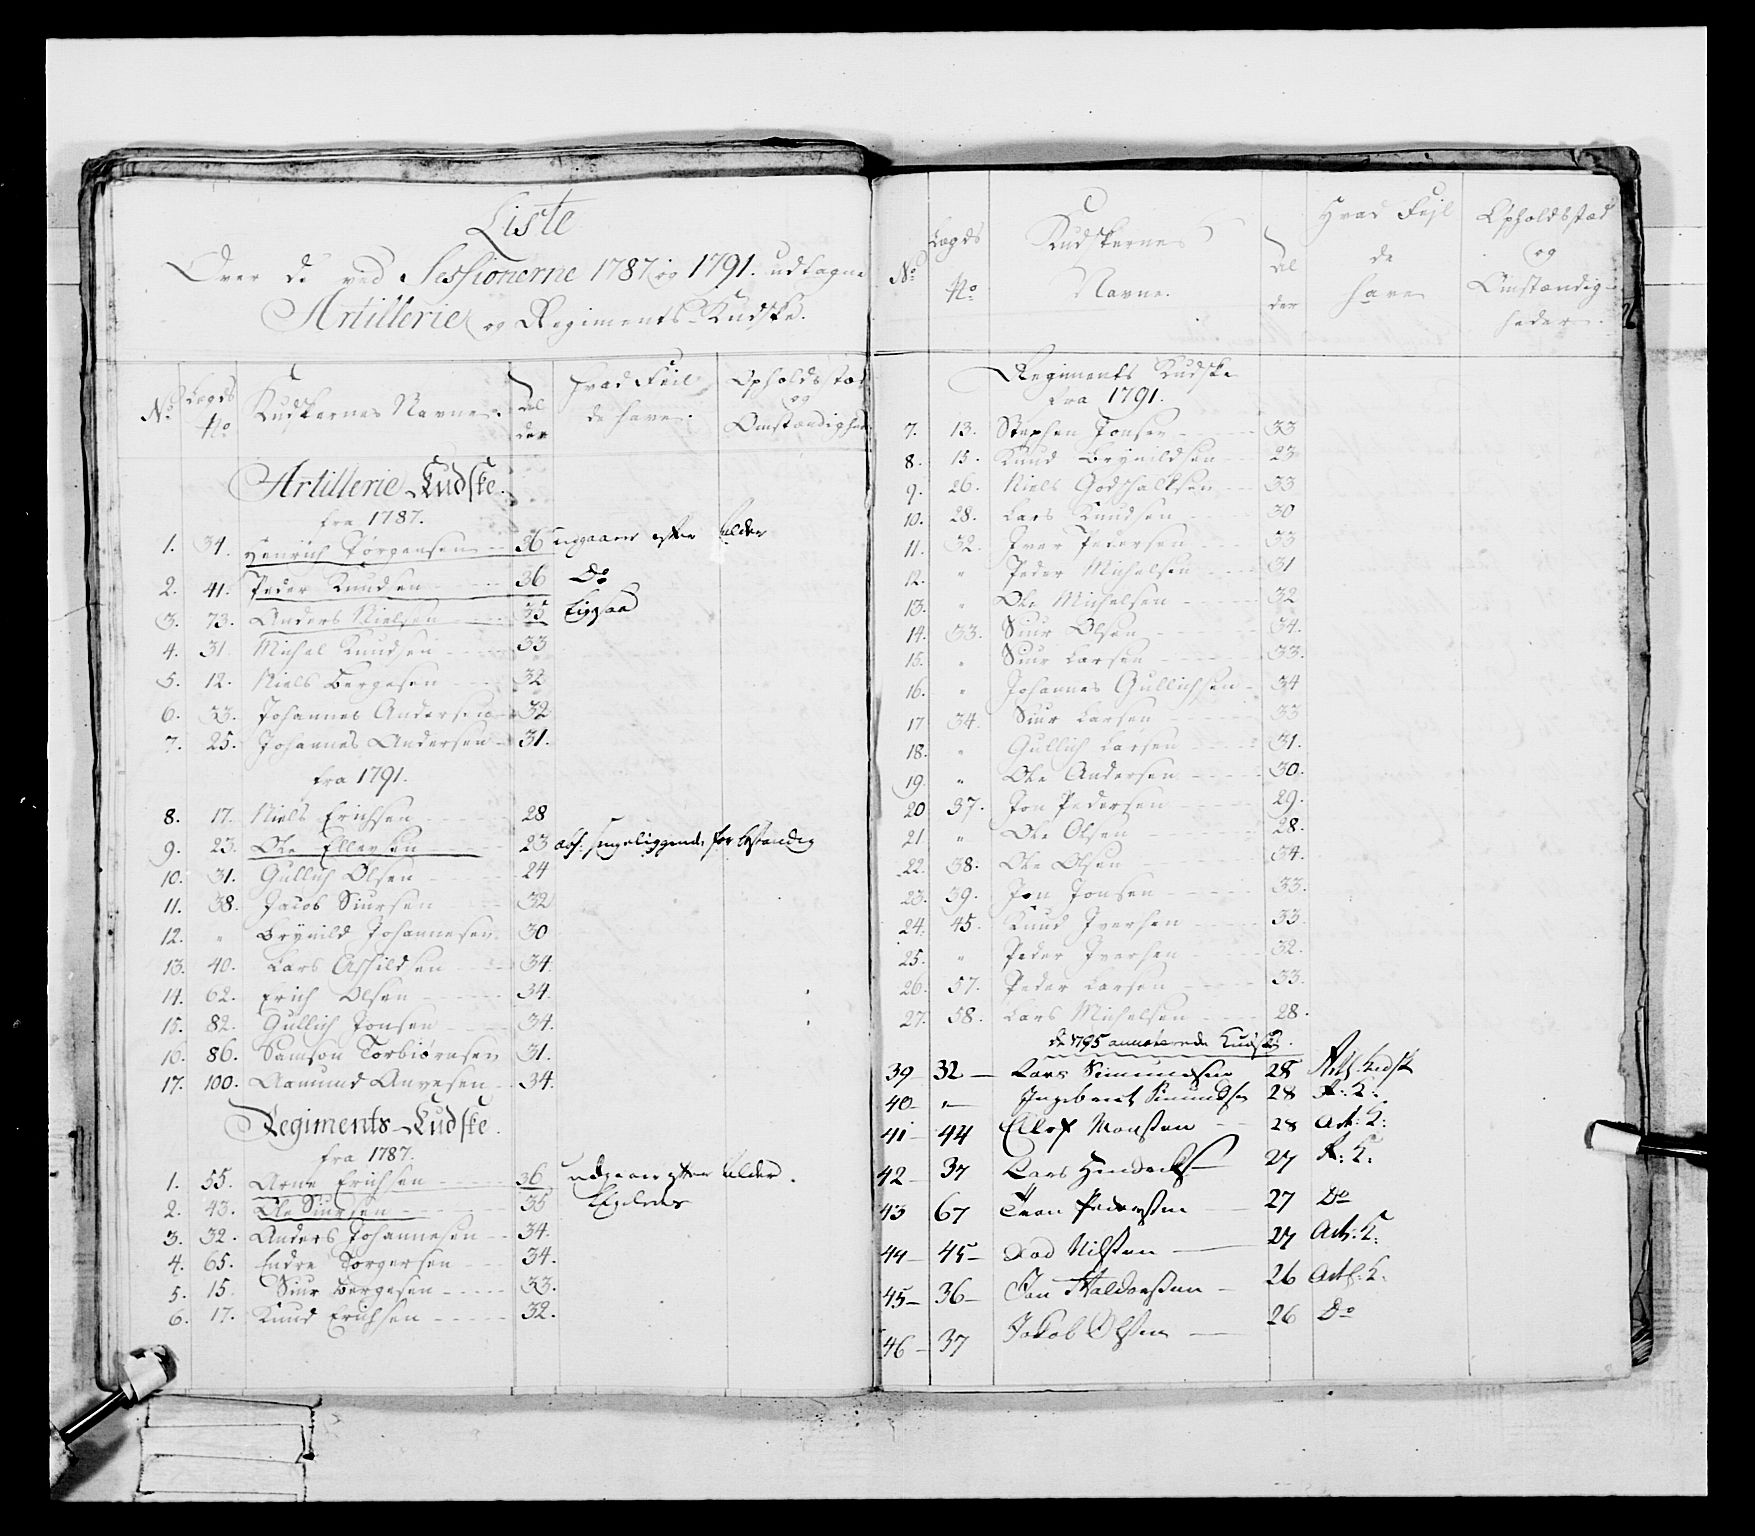 Liste
Over de ved Sessionerne 1787 og 1791. udtagne
Artillerie og Regiments-Kudske.
No. Lægds No Kudskernes Navne. Al der hvad Feil de have. Opholdsstæd og Omstændighed
Artillerie-Kudske.
fra 1787.
1. 34. Henrich Jørgensen 36 udgaaer efter Alder
2. 41. Peder Knudsen 36 Do
3. 73. Anders Nielsen 35 Ligesaa
4. 31. Michel Knudsen 33
5. 12. Niels Bergesen 32
6. 33. Johannes Andersen 32
7. 25. Johannes Andersen 31.
fra 1791.
8. 17. Niels Erichsen 28
9. 23. Ole Ellevsen 23 sengeliggende for bestandig
10. 31. Gullich Olsen 24
11. 38. Jacob Siursen 32
12. " Brynild Johannesen 30
13. 40. Lars Aschildsen 34.
14. 62. Erich Olsen 34.
15. 82. Gullich Jonsen 34.
16. 86. Samson Torbiørnsen 31.
17. 100. Aamund Anvesen 34.
Regiments-Kudske.
fra 1787.
1. 55. Arne Erichsen 36 udgaar efter Alder.
2. 43. Ole Siursen 35
3. 32. Anders Johannesen 34.
4. 65. Endre Torgersen 34.
5. 15. Siur Bergesen 33.
6. 17. Knud Erichsen 32.
No. Lægds No. Kudskernes Navne. Al der Hvad Fejl de have Opholdsstæd og Omstændigheder.
Regiments Kudske
fra 1791.
7. 13. Stephen Jonsen 33
8. 15. Knud Brynildsen 23
9. 26. Niels Godschalksen 33
10. 28. Lars Knudsen 30
11. 32. Iver Pedersen 33
12. " Peder Michelsen 31
13. " Ole Michelsen 32
14. 33. Siur Olsen 34.
15. " Siur Larsen 33.
16. " Johannes Gullichsen 34
17 34. Siur Larsen 33
18. " Gullich Larsen 31.
19. " Ole Andersen 30.
20 37. Jon Pedersen 29.
21 " Ole Olsen 28.
22. 38. Ole Olsen 34.
23. 39. Jon Jonsen 33.
24. 45. Knud Iversen 33.
25. " Peder Iversen 32.
26. 57. Peder Larsen 33.
27. 58. Lars Michelsen 28.
de 1795 annoterede Kudske.
39 32 Lars Simundsen 28 Artl. Kudsk
40 " Ingebrect Simundsn 28 R: K:
41 44 Ellef Monssen 28 Art: K:
42 37 Lars 27 R: K:
43 67 Pederssen 27 Do
44 45 Nilssen 27 Art: K:
45 36 Jon Haldorssen 26 Artl: K:
46 37 Jakob Olssen 26 Do